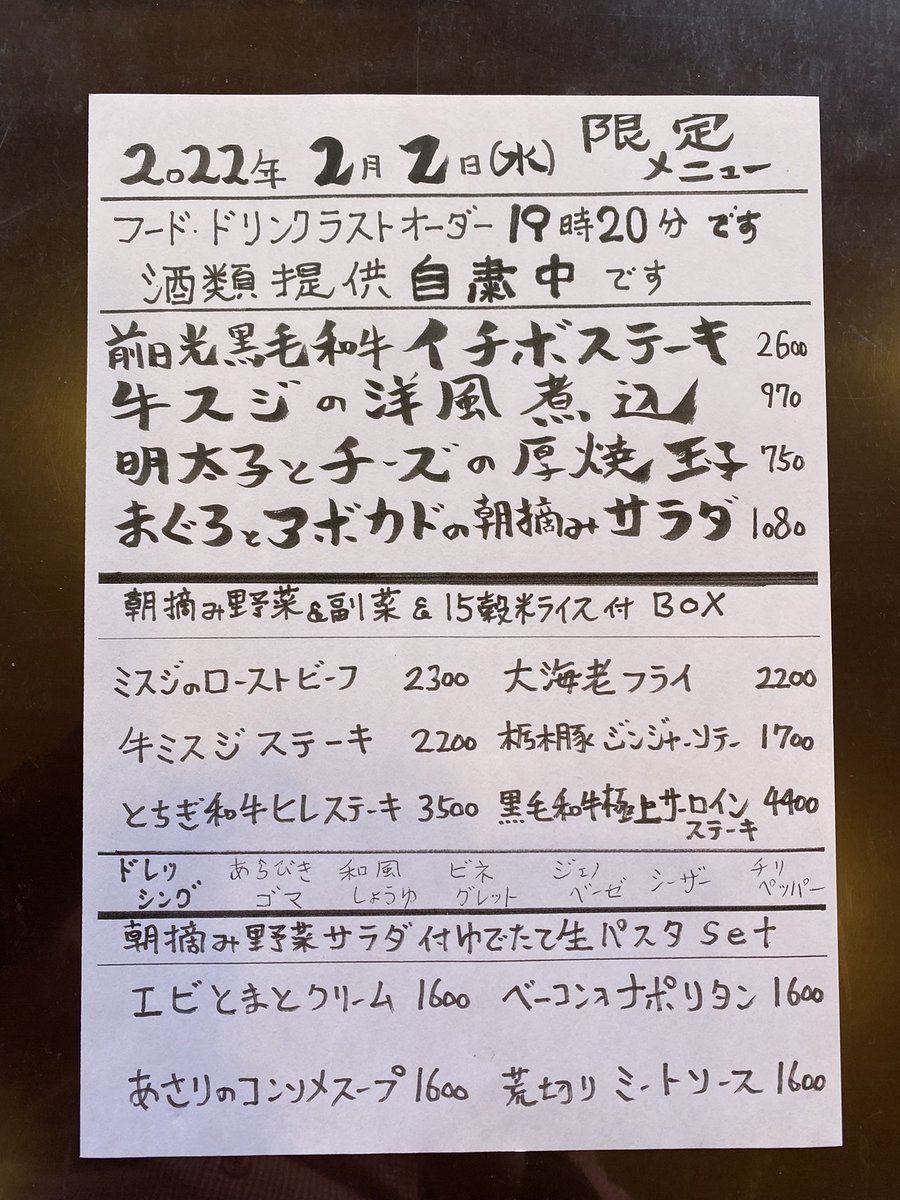 2022年 2月 2日(水) 限定メニュー
フード・ドリンクラストオーダー 19時20分 です
酒類提供 自粛中 です
前日光黒毛和牛 イチボステーキ 2600
牛スジの洋風煮込 970
明太子とチーズの厚焼玉子 750
まぐろとアボカドの朝摘みサラダ 1080
朝摘み野菜&副菜&15穀米ライス付 BOX
ミスジのローストビーフ 2300 大海老フライ 2200
牛ミスジステーキ 2200 栃木豚ジンジャーソテー 1700
とちぎ和牛ヒレステーキ 3500 黒毛和牛極上サーロインステーキ 4400
ドレッシング あらびきゴマ 和風しょうゆ ビネグレット ジェノベーゼ シーザー チリペッパー
朝摘み野菜サラダ付ゆでたて生パスタ Set
エビとまとクリーム 1600 ベーコンオナポリタン 1600
あさりのコンソメスープ 1600 荒切りミートソース 1600